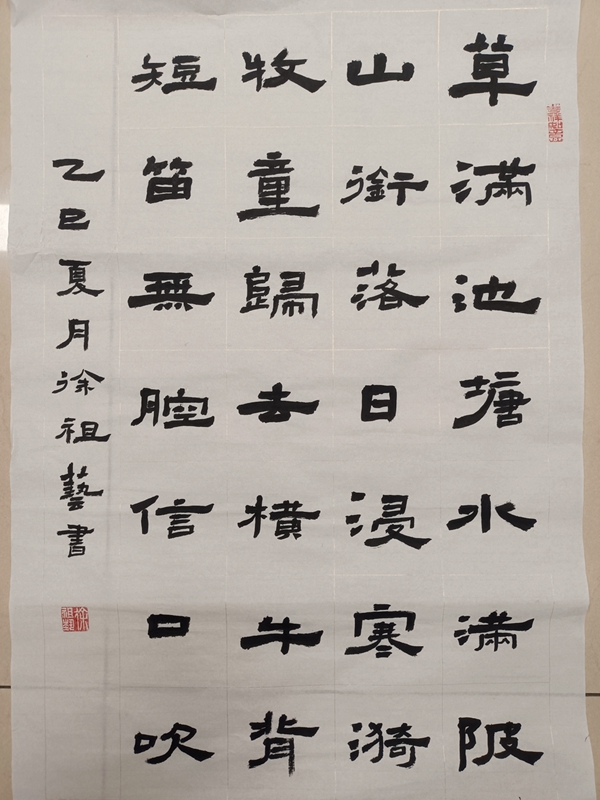 草滿池塘水滿陂
山銜落日浸寒漪
牧童歸去橫牛背
短笛無腔信口吹
乙巳夏月徐祖藝書